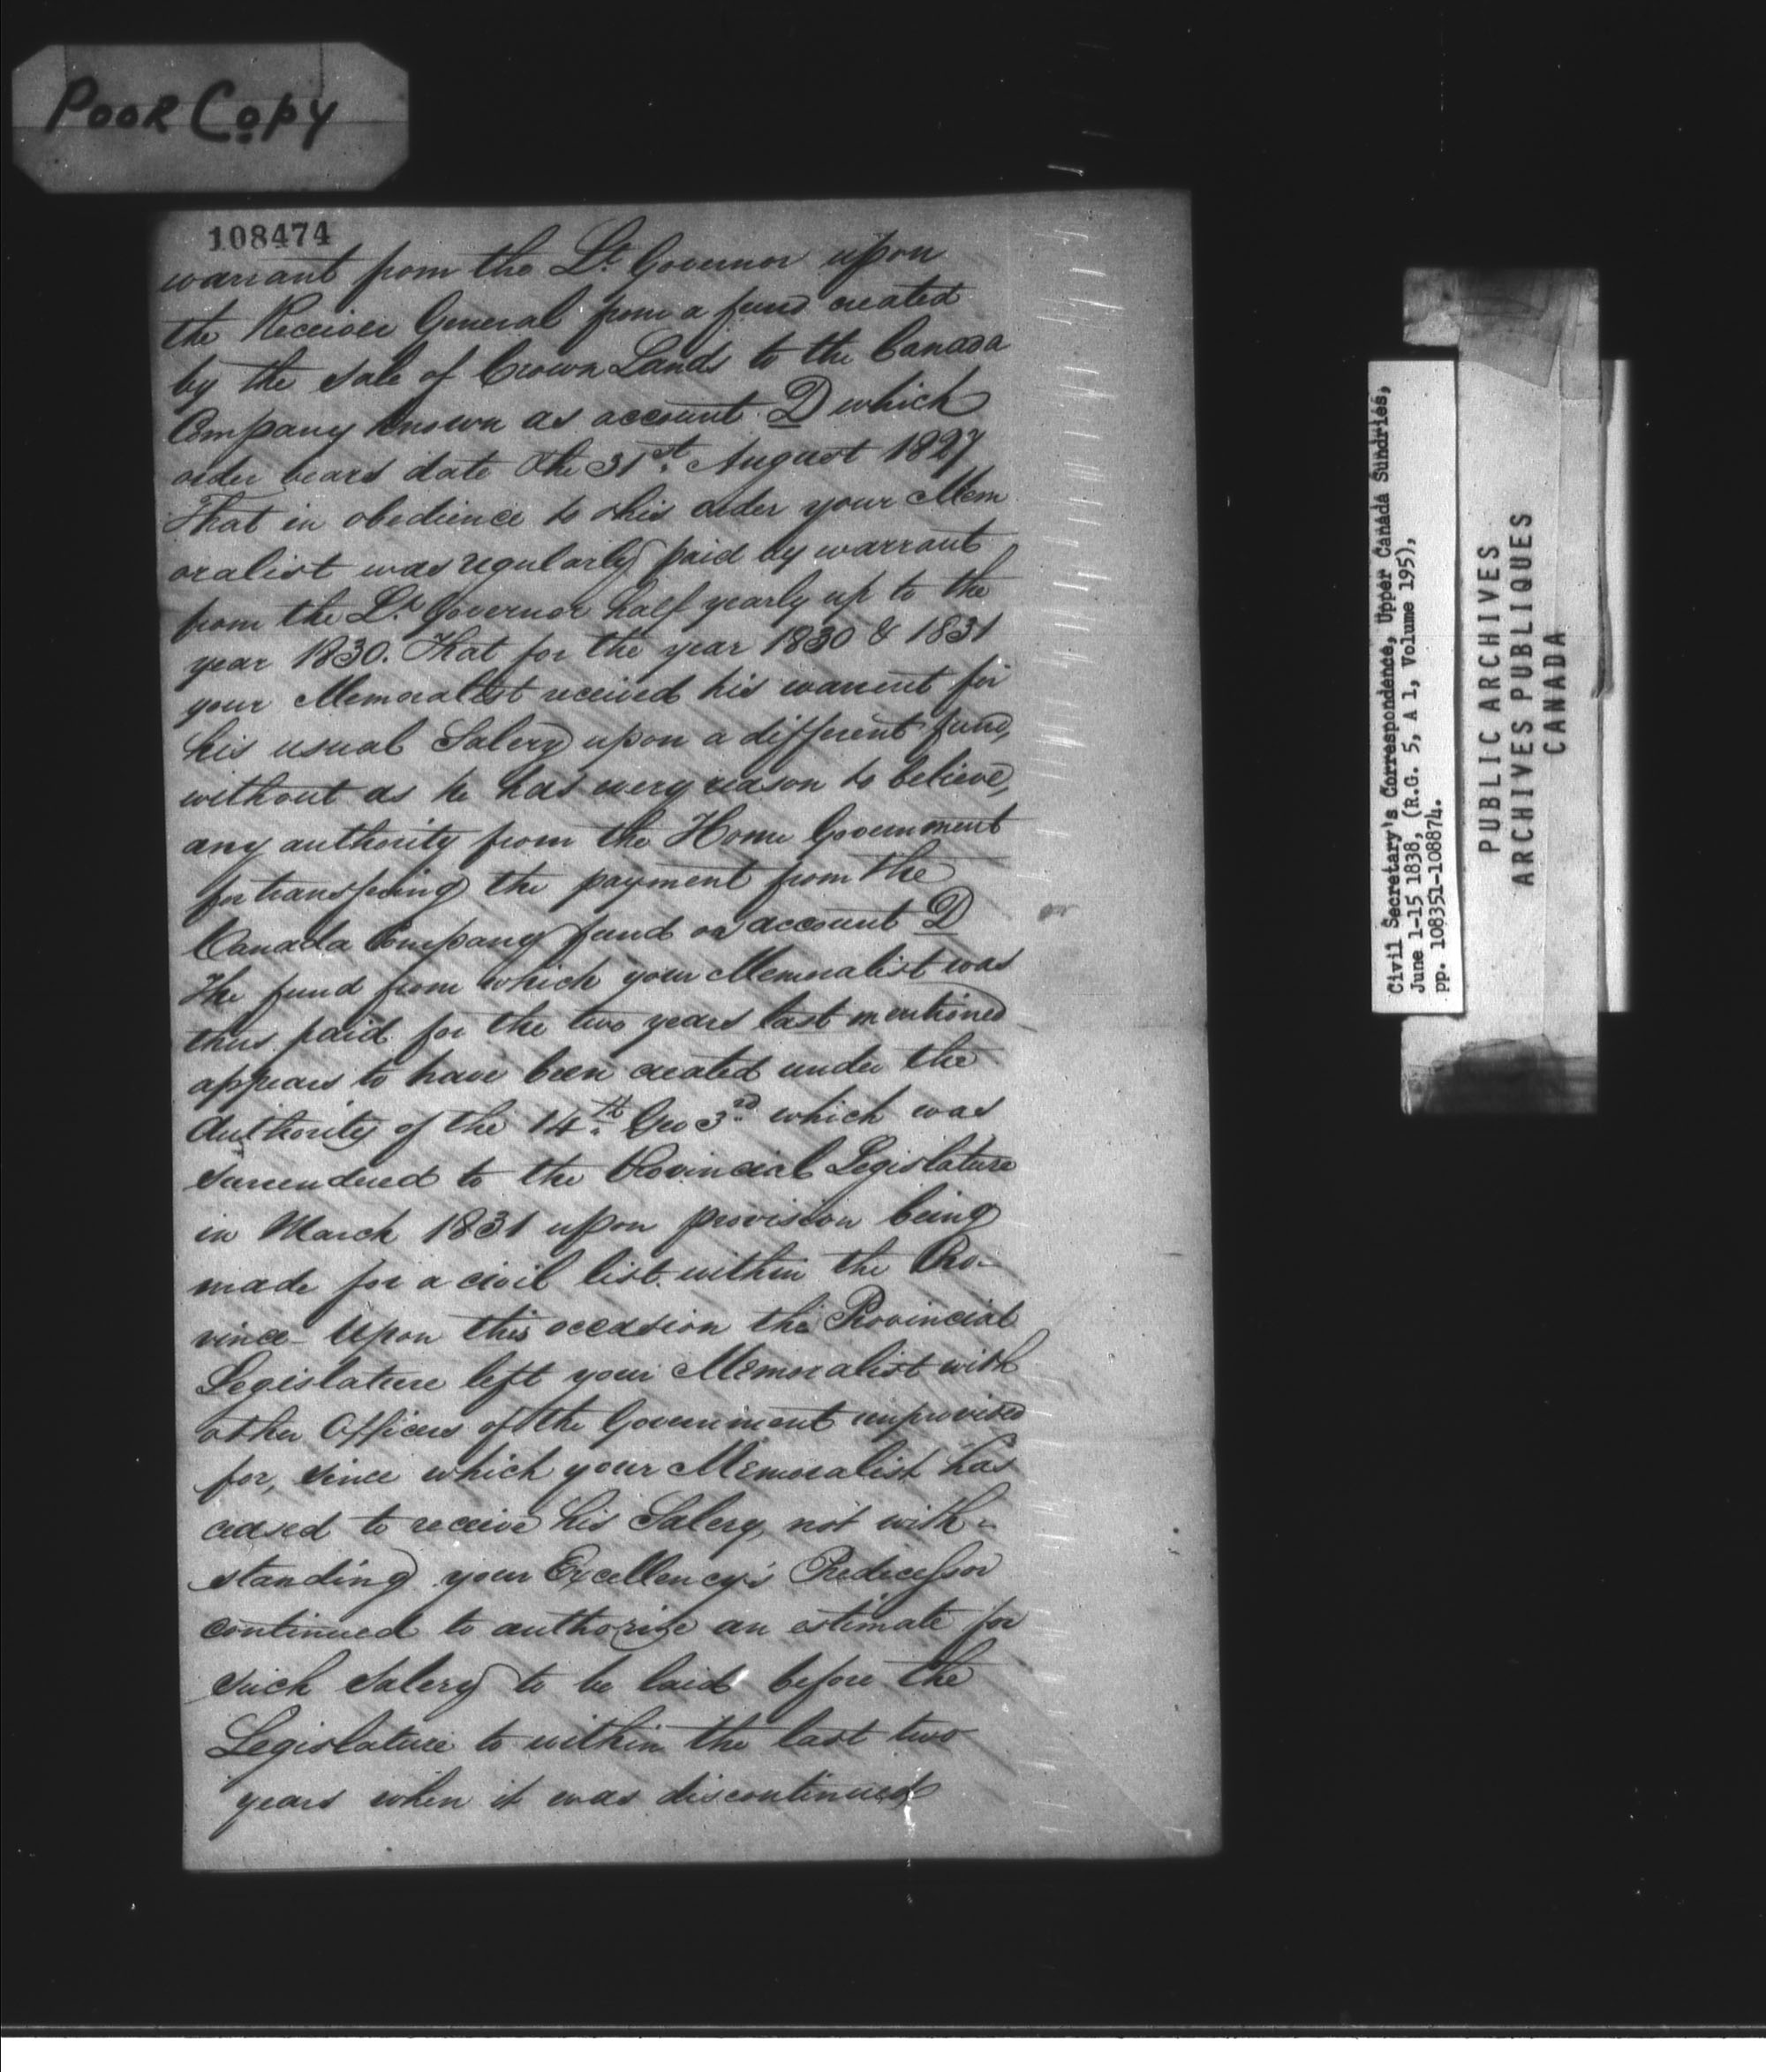 Poor Copy
108474
warrant from the Lt. Governor upon
the Receiver General from a fund created
by the sale of Crown Lands to the Canada
Company known as account D which
order bears date the 31st. August 1827
That in obedience to this order your Mem
oralist was regularly paid by warrant
from the Lt. Governor half yearly up to the
year 1830. That for the year 1830 & 1831
your Memoralist received his warrent for
his usual Salery upon a different fund,
without as he has every reason to believe,
any authority from the Home Government
for transfering the payment from the
Canada Company fund or account D
The fund from which your Memoralist was
thus paid for the two years last mentioned
appears to have been created under the
Authority of the 14th. Geo 3rd. which was
surrendered to the Provincial Legislature
in March 1831 upon provision being
made for a civil list within the Pro-
vince Upon this occasion the Provincial
Legislature left your Memoralist with
other Officers of the Government unprovided
for, since which your Memoralist has
ceased to receive his Salery, not with-
standing your Excellency's Predicessor
continued to authorize an estimate for
such Salery to be laid before the
Legislature to within the last two
years when it was discontinued
Civil Secretary's Correspondence, Upper Canada Sundries,
June 1-15 1838, (R.G. 5, A 1, Volume 195),
pp. 108351-108874.
PUBLIC ARCHIVES
ARCHIVES PUBLIQUES
CANADA